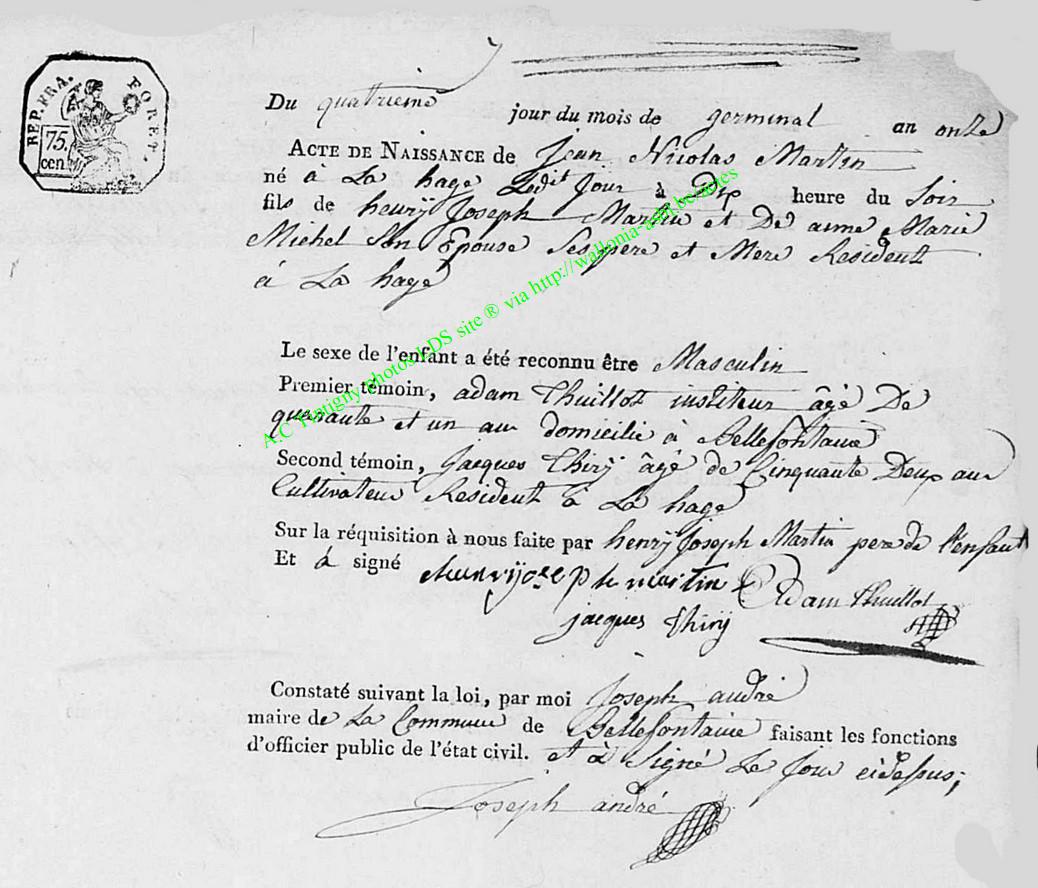 REP. FRA.
FORET.
75.
cen.
Du quatrieme jour du mois de germinal an onze
ACTE DE NAISSANCE de Jean Nicolas Martin
né à La hage Ledit Jour à Dix heure du Soir
fils de henrÿ Joseph Martin et De anne Marie
Michel Son Epouse Ses pere et Mere Resident
à La hage
Le sexe de l'enfant a été reconnu être Masculin
Premier témoin, adam Thuillot institeur âgé De
quarante et un an domicilié à Bellefontaine
Second témoin, Jacques Thirÿ âgé de Cinquante Deux an
Cultivateur Resident à La hage
Sur la réquisition à nous faite par henrÿ Joseph Martin pere de l'enfant
Et à signé joseph martin Adam Thuillot
jacques Thirÿ
Constaté suivant la loi, par moi Joseph andré
maire de La Commune de Bellefontaine faisant les fonctions
d'officier public de l'état civil. et à Signé Le Jour cidessus;
Joseph andré
A.C Tintigny photos LDS site ® via http://wallonia-asbl.be/actes